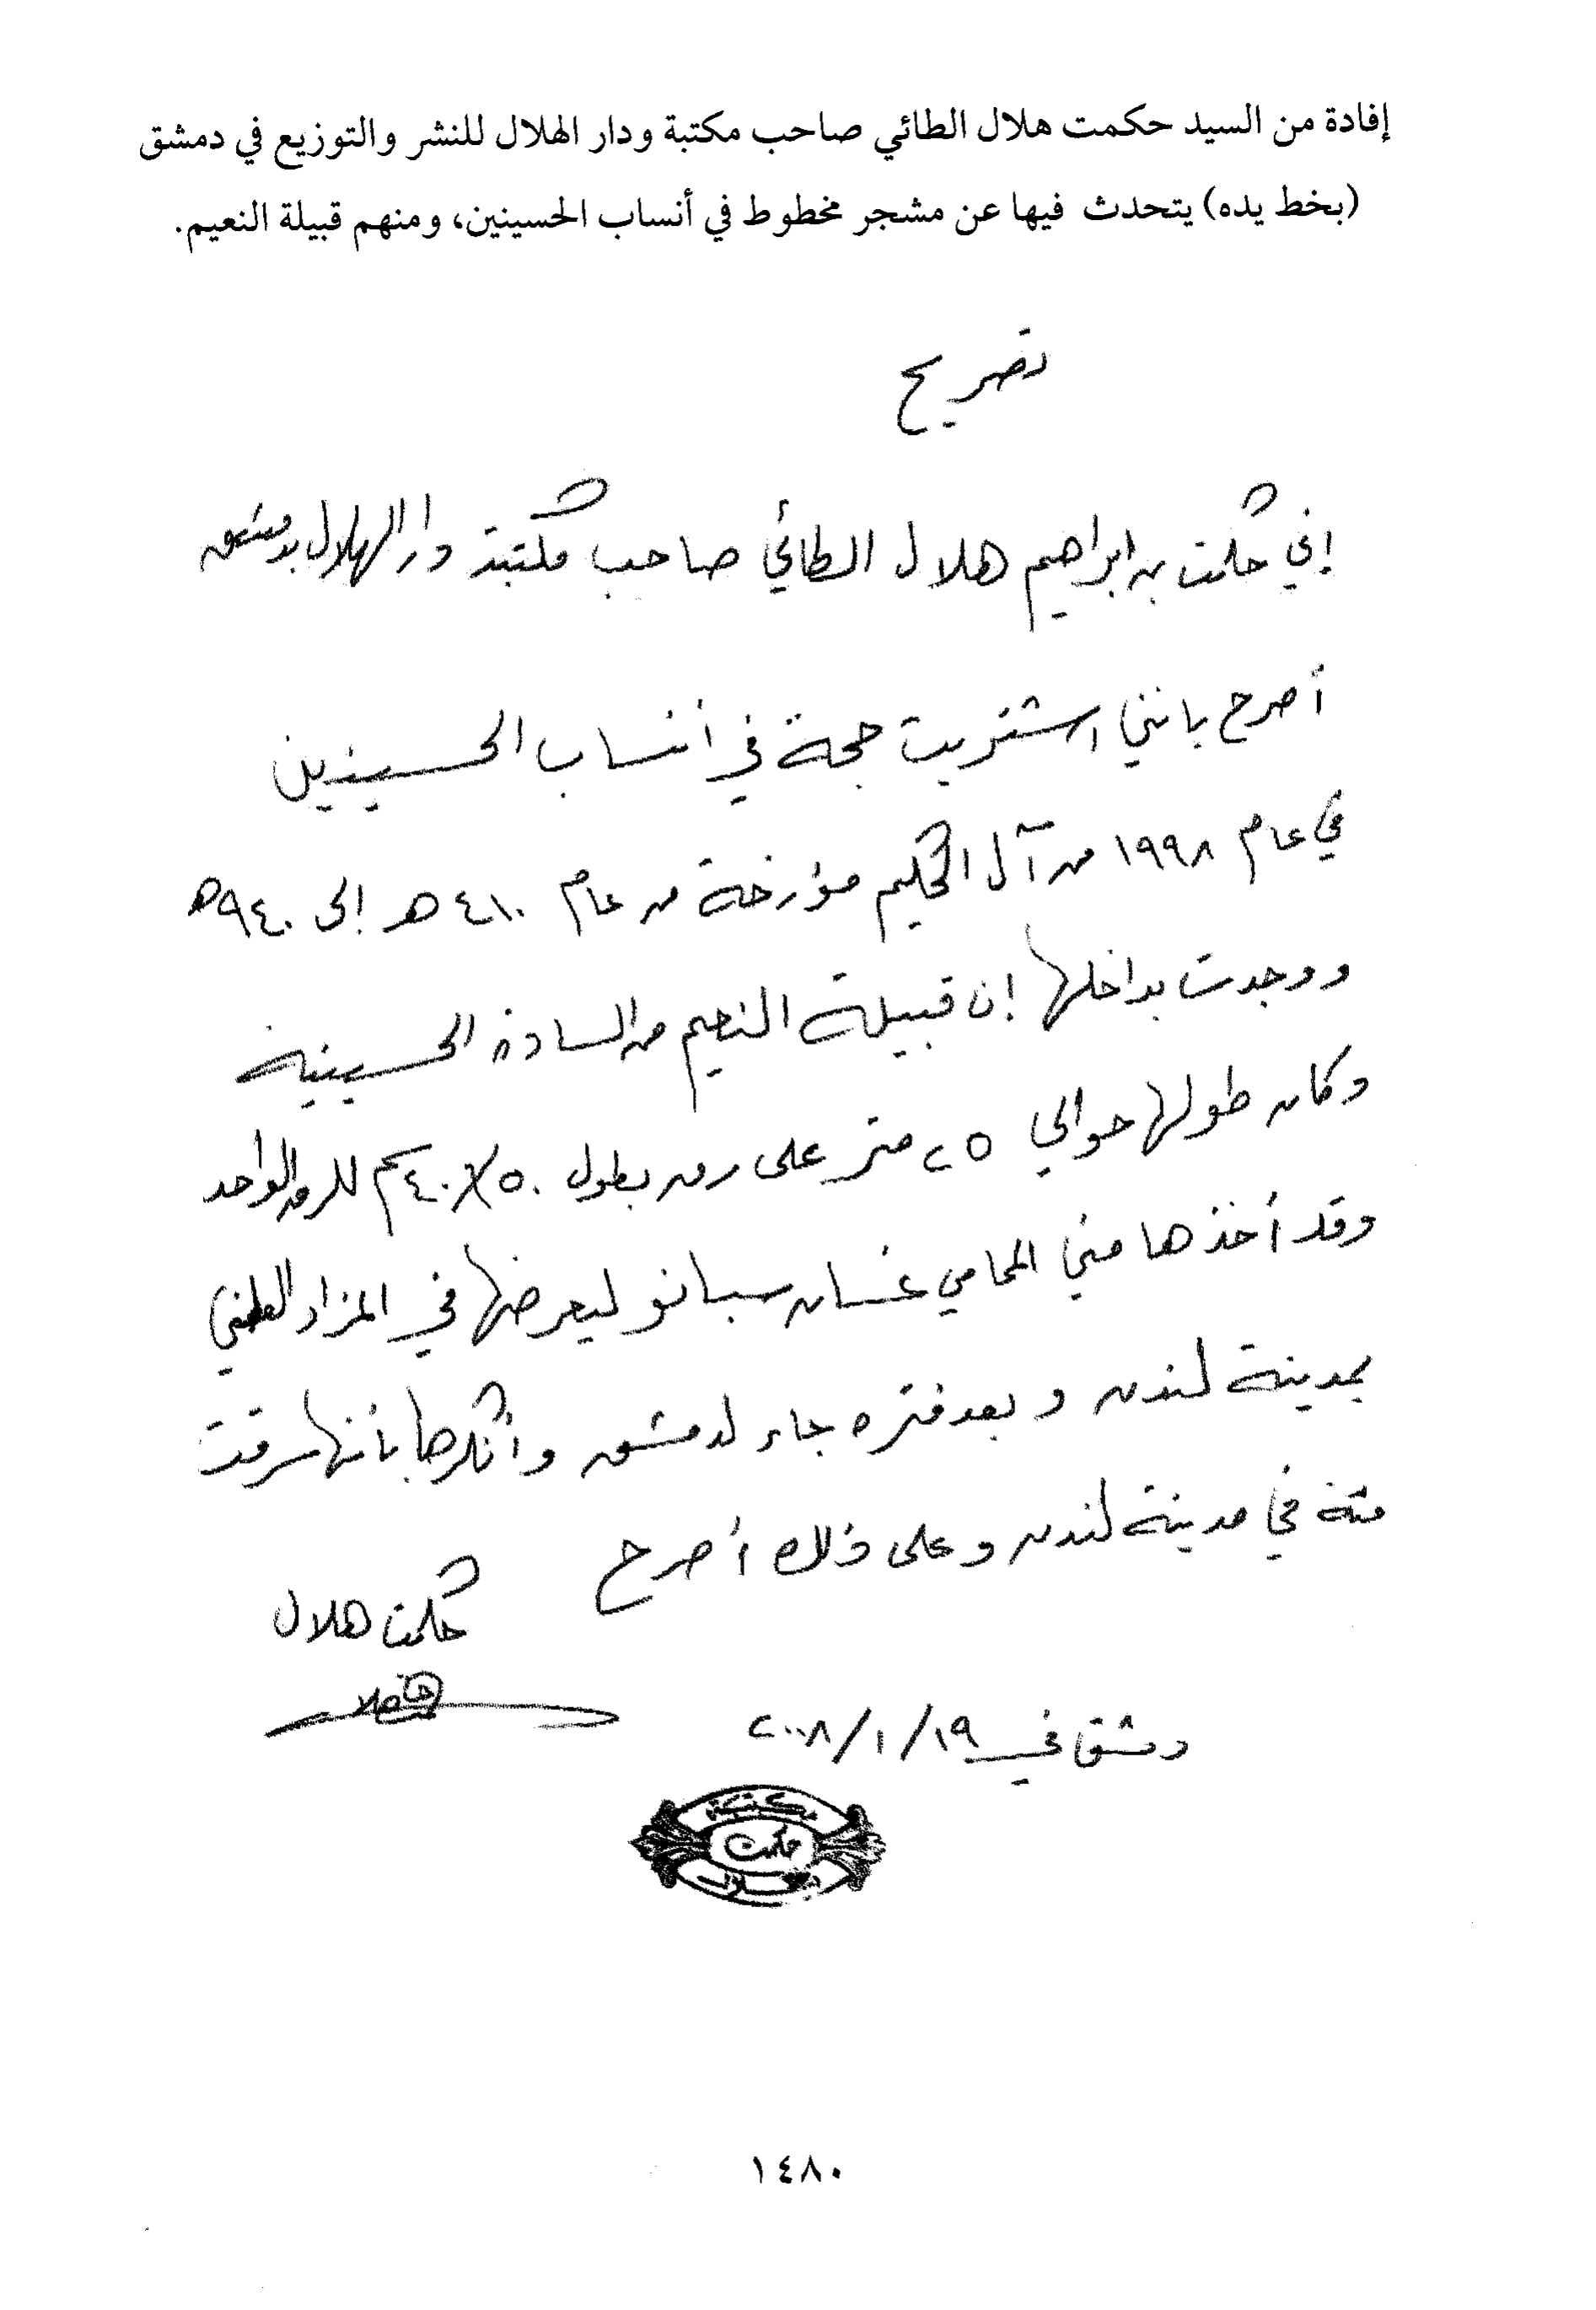 إفادة من السيد حكمت هلال الطائي صاحب مكتبة ودار الهلال للنشر والتوزيع في دمشق
(بخط يده) يتحدث فيها عن مشجر مخطوط في أنساب الحسينين، ومنهم قبيلة النعيم.
تصريح
إني حكمت بن ابراهيم هلال الطائي صاحب مكتبة دار الهلال بدمشق
أصرح بأنني اشتريت حجة في أنساب الحسينين
في عام ١٩٩٨ من آل الحكيم مؤرخة من عام ٤١٠ هـ إلى ٩٤٠ هـ
ووجدت بداخلها إن قبيلة النعيم من السادة الحسينية
وكان طولها حوالي ٢٥ متر على رق بطول ٥٠/٤٠ سم للرق الواحد
وقد أخذها مني المحامي غسان سبانو ليعرضها في المزاد العلني
بمدينة لندن وبعد فتره جاء لدمشق وأنكرها بأنها سرقت
منه في مدينة لندن وعلى ذلك أصرح
حكمت هلال
دمشق في ١٩/١/٢٠٠٨
مكتبة
حكمت
هلال
١٤٨٠